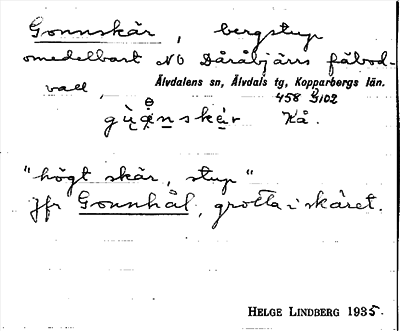 Gonnskär, bergstup
omedelbart NO Dåråbjärs fäbod-
vall,
Älvdalens sn, Älvdals tg, Kopparbergs län.
458 G102
Kå.
"högt skär, stup"
Jfr Gonnhål, grotta i skäret.
HELGE LINDBERG 1935.